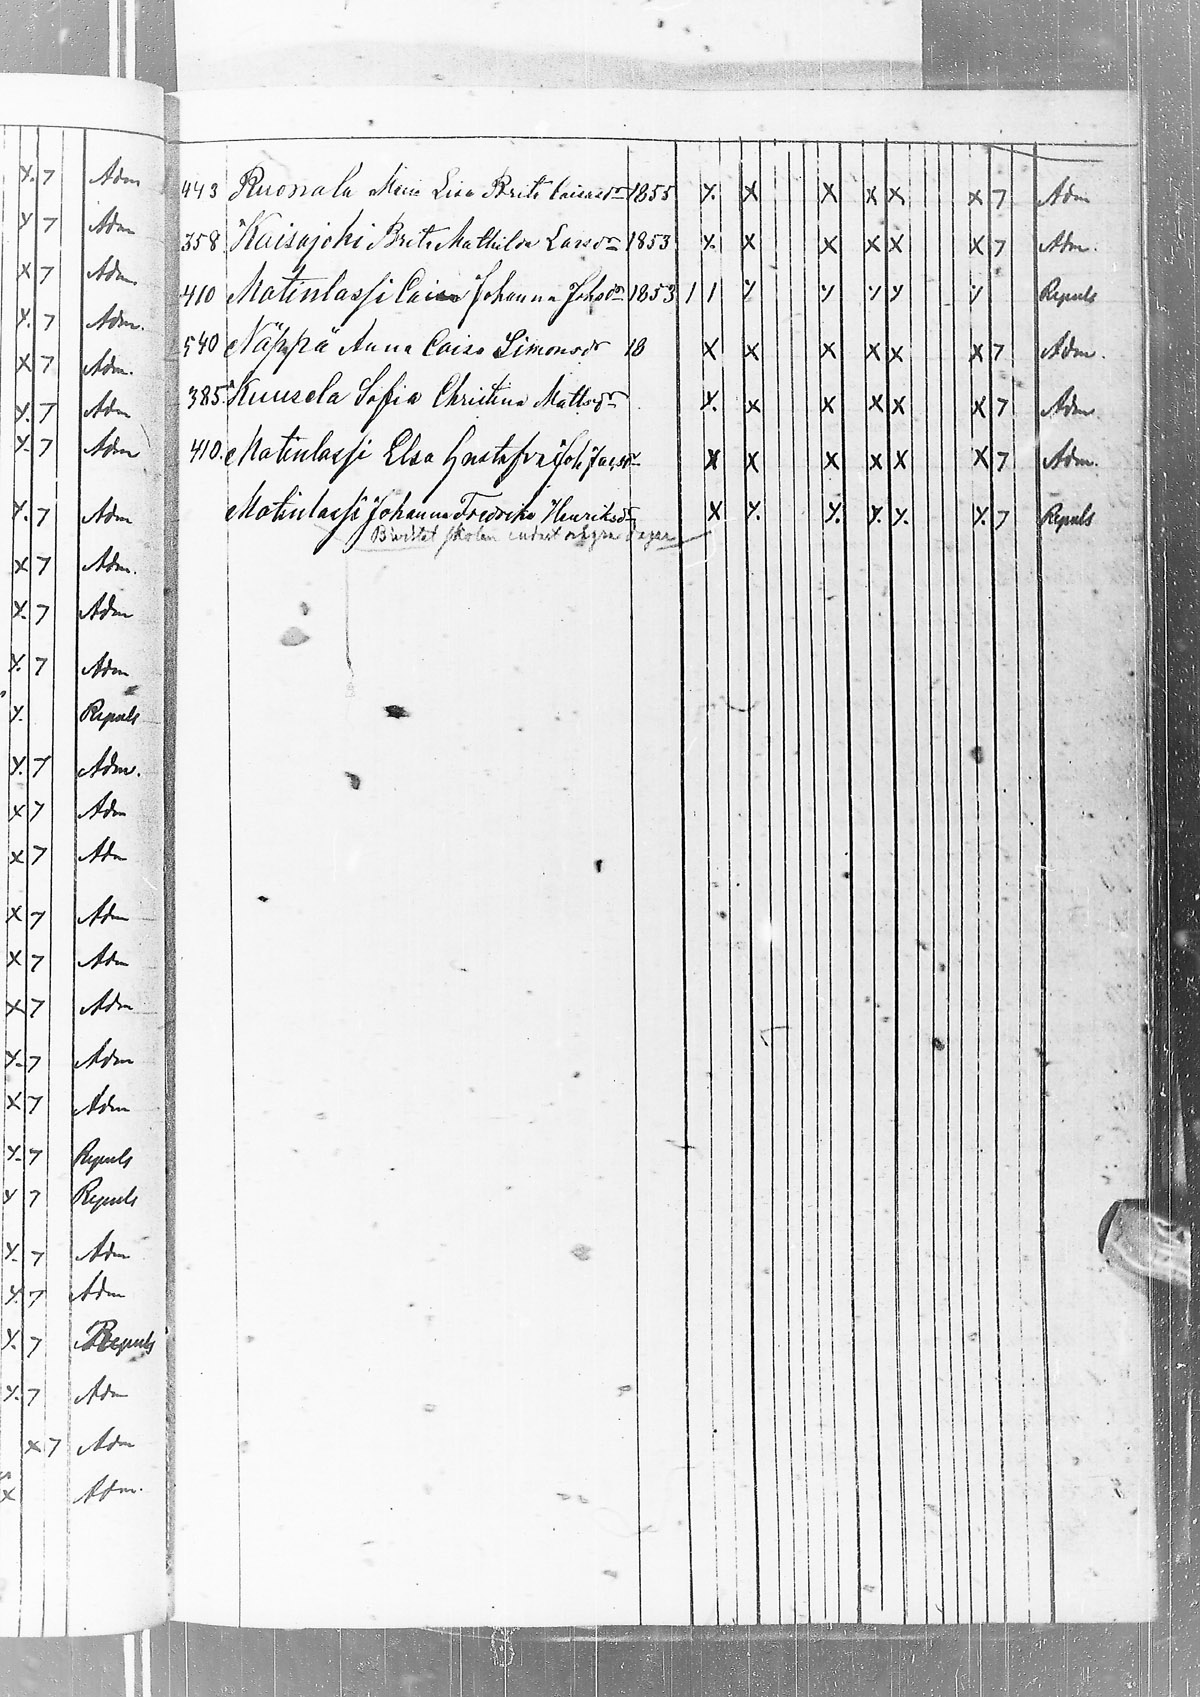 Y. 7 Adm
Y 7 Adm
X 7 Adm.
Y. 7 Adm.
X 7 Adm.
Y. 7 Adm
Y. 7 Adm
Y. 7 Adm
X 7 Adm.
Y. 7 Adm
Y. 7 Adm
Y. Repuls
Y. 7 Adm.
X 7 Adm
X 7 Adm
X 7 Adm
X 7 Adm
X 7 Adm
Y. 7 Adm
X 7 Adm
Y. 7 Repuls
Y 7 Repuls
Y. 7 Adm
Y. 7 Adm
Y. 7 Repuls
Y. 7 Adm
X 7 Adm
X Adm.
443 Ruonala Maria Lisa Brita Caisasdr 1855 Y. X X X X X 7 Adm
358 Kaisajoki Brita Mathilda Larsdr 1853 Y. X X X X X 7 Adm.
410 Matinlassi Caisa Johanna Johsdr 1853 1 1 Y Y Y Y Y Repuls
540 Näppä Anna Caisa Simonsdr 18 X X X X X X 7 Adm.
385 Kuusela Sofia Christina Mattsdr Y. X X X X X 7 Adm
410. Matinlassi Elsa Gustafva Joh X X X X X X 7 Adm.
Matinlassi Johanna Fredrika Henriksdr X Y. Y. Y. Y. Y. 7 Repuls
Bevistat skolan endast några dagar